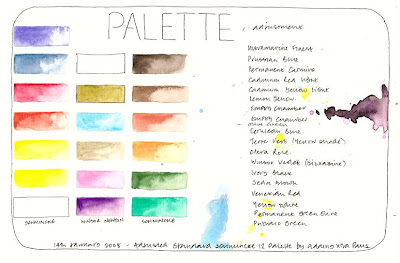 PALETTE - adjustment
Ultramarine Finest
Prussian Blue
Permanent Carmine
Cadmium Red light
Cadmium Yellow light
Lemon Yellow
Empty Chamber
Empty Chamber
olive green
Cerulean Blue
Terre Verte (Yellow shade)
Opera Rose
Winsor Violet (Dioxazine)
Ivory Black
Sepia Brown
Venetian Red
Yellow Ochre
Permanent Green Olive
Phthalo Green
SCHMINCKE WINSOR NEWTON SCHMINCKE
14th January 2008 - Adjusted Standard Schmincke 12 Palette by adding xtra Pans